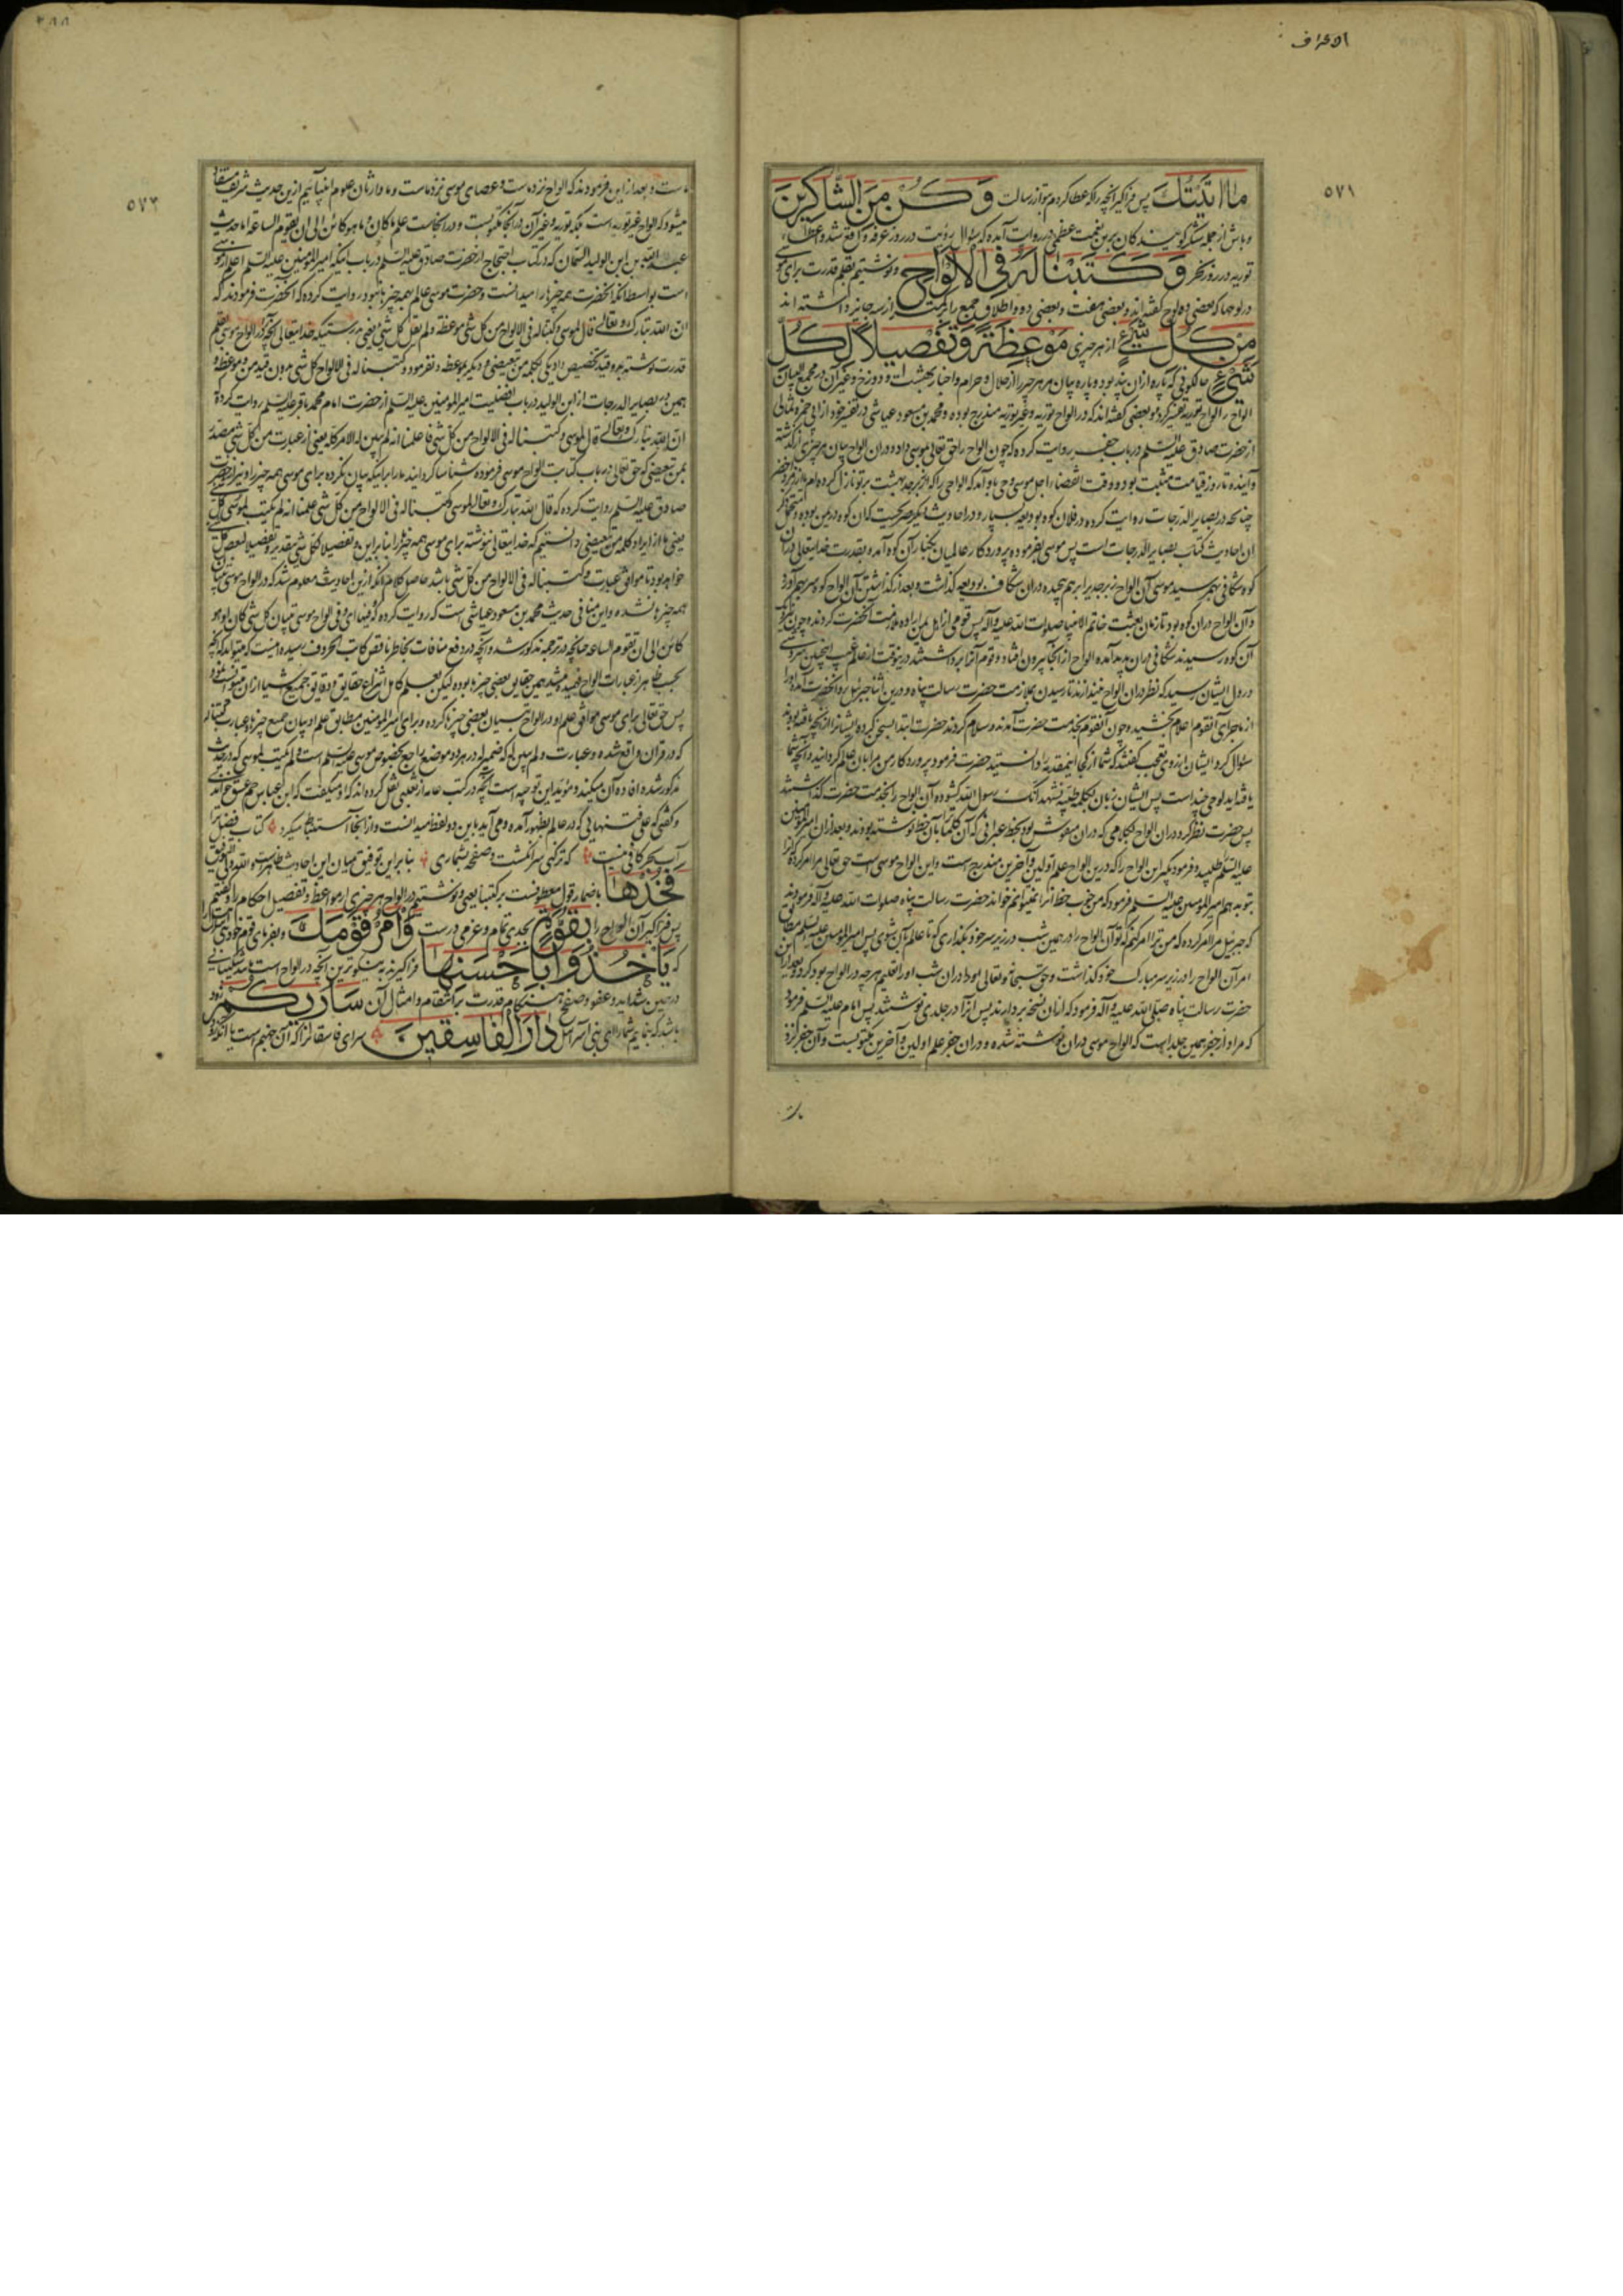 الاعراف
٥٧١
ما اتیتک پس فراگیر آنچه را که عطا کردم بتو از رسالت وکن من الشاکرین
و باش از جمله شکر گویندگان برین نعمت عظمی در روایت آمده که سؤال رؤیت در روز عرفه واقع شد و اعطاء
توریه در روز نحر وکتبنا له فی الالواح و نوشتیم بقلم قدرت برای موسی
در لوحها که بعضی ده لوح گفته اند و بعضی هفت و بعضی دو و اطلاق جمع را کمتر از سه جایز داشته اند
من کل شیء از هر چیزی موعظة وتفصیلا لکل
شیء حالکونی که پاره ازان پند بود و پاره بیان مر هر چیز را از حلال و حرام و اخبار بهشت و دوزخ و غیر آن در مجمع البیان
الواح را الواح توریة تفسیر کرده و بعضی گفته اند که در الواح توریه و غیر توریه مندرج بوده و محمد بن مسعود عیاشی در تفسیر خود از ابی حمزه ثمالی
از حضرت صادق علیه السلم در باب جفر روایت کرده که چون الواح را حق تعالی بموسی داد و دران الواح بیان هر چیزی از گذشته
و آینده تا روز قیامت مثبت بوده و وقت انقضاء اجل موسی وحی باو آمد که الواحی را که از زبرجد بهشت بر تو نازل کرده ام
چنانچه در بصایر الدرجات روایت کرده در فلان کوه بودیعه بسپار و در احادیث دیگر صریحست که ان کوه در یمن بوده
ان احادیث کتاب بصایر الدرجات است پس موسی بفرموده پروردگار عالمیان بکنار آن کوه آمده بقدرت خدایتعالی دران
کوه شکافی بهم رسید موسی آن الواح زبرجد را برهم پیچیده دران شکاف بودیعه گذاشت و بعد از گذاشتن آن الواح کوه سر بهم آورد
و آن الواح دران کوه بود تا زمان بعثت خاتم الانبیا صلوات الله علیه و آله پس قومی از اهل یمن اراده ملازمت آنحضرت کردند و چون نزدیک
آن کوه رسیدند شکافی دران پدید آمده الواح از آنجا بیرون افتاد و قوم آنرا برداشتند درینوقت از عالم غیب اینچنین سروشی
در دل ایشان رسید که نظر دران الواح نیندازند تا رسیدن بملازمت حضرت رسالت پناه و درین اثنا جبرئیل بر آنحضرت آمده او را
از ماجرای آنقوم اعلام بخشید و چون آنقوم بخدمت حضرت آمدند و سلام کردند حضرت ابتدا بسخن کرده ایشانرا از آنچه یافته بودند
سئوال کرد ایشان از روی تعجب گفتند که شما از کجا اینمقدمه را دانستید حضرت فرمود پروردگار من مرا بان عالم گردانید و آنچه شما
یافته اید لوحی چند است پس ایشان زبان بکلمه طیبه نشهد انک رسول الله گشوده آن الواح را بخدمت حضرت گذاشتند
پس حضرت نظر کرد دران الواح بکلامی که دران منقوش بود بخط عبرانی که آن کلمات بآن خط نوشته بودند و بعد ازان امیر المؤمنین
علیه السلم طلبید و فرمود بگیر این الواح را که درین الواح علم اولین و آخرین مندرج است و این الواح موسی است حق تعالی مرا امر کرده که آنرا
بتو بدهم امیر المؤمنین علیه السلم فرمود که من خوب خط آنرا نمیتوانم خواند حضرت رسالت پناه صلوات الله علیه و آله فرمودند
که جبرئیل مرا امر کرده که من ترا امر کنم که تو آن الواح را در همین شب در زیر سر خود بگذاری که تا عالم بآن شوی پس امیر المؤمنین علیه السلم مطابق
امر آن الواح را در زیر سر مبارک خود گذاشت و حق سبحانه و تعالی هم دران شب او را تعلیم هرچه در الواح بود کرد و بعد ازان
حضرت رسالت پناه صلی الله علیه و آله فرمود که ازان نسخه بردارند پس آنرا در جلدی نوشتند پس امام علیه السلم فرمود
که مراد از جفر همین جلد است که الواح موسی دران نوشته شده و دران جفر علم اولین و آخرین مکتوبست و آن جفر نزد
ما
٥٧٢
ماست و بعد ازاین فرمودند که الواح نزد ماست و عصای موسی نزد ماست و ما وارثان علوم انبیائیم ازین حدیث شریف مستفاد
میشود که الواح غیر توریه است بلکه توریه و غیر آن در آنجا مکتوبست و در آنجاست علم ما کان و ما هو کائن الی ان یقوم الساعة اما حدیث
عبد الله بن الولید السمان که در کتاب احتجاج از حضرت صادق علیه السلم در باب اینکه امیر المؤمنین علیه السلم اعلم از موسی
است بواسطه آنکه آنحضرت همه چیزها را میدانست و حضرت موسی عالم بهمه چیزها نبود روایت کرده که آنحضرت فرمودند که
ان الله تبارک و تعالی قال لموسی وکتبنا له فی الالواح من کل شیء موعظة ولم یقل کل شیء یعنی بدرستیکه خدایتعالی آنچه در الواح موسی بقلم
قدرت نوشته بدو قید تخصیص داد یکی بکلمه من تبعیضی و دیگر بموعظه و نفرمود وکتبنا له فی الالواح کل شیء بدون قید من و موعظه و
همین در بصایر الدرجات از ابن الولید در باب افضلیت امیر المؤمنین علیه السلم از حضرت امام محمد باقر علیه السلم روایت کرده
ان الله تبارک و تعالی قال لموسی وکتبنا له فی الالواح من کل شیء فاعلمنا انه لم یبین له الامر کله یعنی از عبارت من کل شیء مصدر
بمن تبعیضی که حق تعالی در باب کتابت الواح موسی فرموده شناسا گردانید ما را بر اینکه بیان نکرده برای موسی همه چیز را و نیز از حضرت
صادق علیه السلم روایت کرده که قال الله تبارک و تعالی لموسی وکتبنا له فی الالواح من کل شیء علمنا انه لم یکتب لموسی کل شیء
یعنی ما از ایراد کلمه من تبعیضی دانستیم که خدایتعالی ننوشته برای موسی همه چیز را بنا برین و تفصیلا لکل شیء بتقدیر و تفصیلا لبعض کل
خواهد بود تا موافق عبارت وکتبنا له فی الالواح من کل شیء باشد حاصل کلام آنکه ازین احادیث معلوم شد که در الواح موسی بیان
همه چیزها نشده و این منافی حدیث محمد بن مسعود عیاشی است که روایت کرده که فیها ای فی الواح موسی تبیان کل شیء کان او هو
کائن الی ان تقوم الساعه چنانچه در ترجمه مذکور شد و آنچه در دفع منافات بخاطر ناقص کاتب الحروف رسیده اینست که میتواند که آنچه
بحسب ظاهر از عبارات الواح فهمیده میشد همین حقایق بعضی چیزها بوده و لیکن بعلم کامل انتزاع حقایق و دقایق جمیع اشیا ازان میتوانست نمود
پس حق تعالی برای موسی موافق علم او در الواح تبیان بعضی چیزها کرده و برای امیر المؤمنین مطابق علم او بیان جمیع چیزها و عبارت کتبنا له
که در قران واقع شده و عبارت و لم یبین له که ضمیر له در هردو موضع راجع بخصوص موسی علیه السلم است و لم یکتب لموسی که در حدیث
مذکور شده افاده آن میکند و مؤید این توجیه است آنچه در کتب عامه از ثعلبی نقل کرده اند که او میگفت که ابن عباس حم عسق خواندی
و گفتی که علی فتنهایی که در عالم بظهور آمده و می آید باین دو لفظ میدانست و از آنجا استنباط میکرد کتاب فضل ترا
آب بحر کافی نیست که تر کنی سر انگشت و صفحه بشماری بنا براین توفیق میان این احادیث ظاهرست والله ولی التوفیق
فخذها باضمار قول معطوفست بر کتبنا یعنی و نوشتیم در الواح هر چیزی از مواعظ و تفصیل احکام را و گفتیم
پس فراگیر آن الواح را بقوة بجدی تمام و عزمی درست وامر قومک و بفرمای قوم خود را
که یاخذوا باحسنها فراگیرند به نیکوترین آنچه در الواح است مثل شکیبایی
در حین شداید و عفو و صفح هنگام قدرت بر انتقام و امثال آن ساریکم زود
باشد که بنمایم شما را ای بنی اسرائیل دار الفاسقین سرای فاسقان را که آن جهنم است